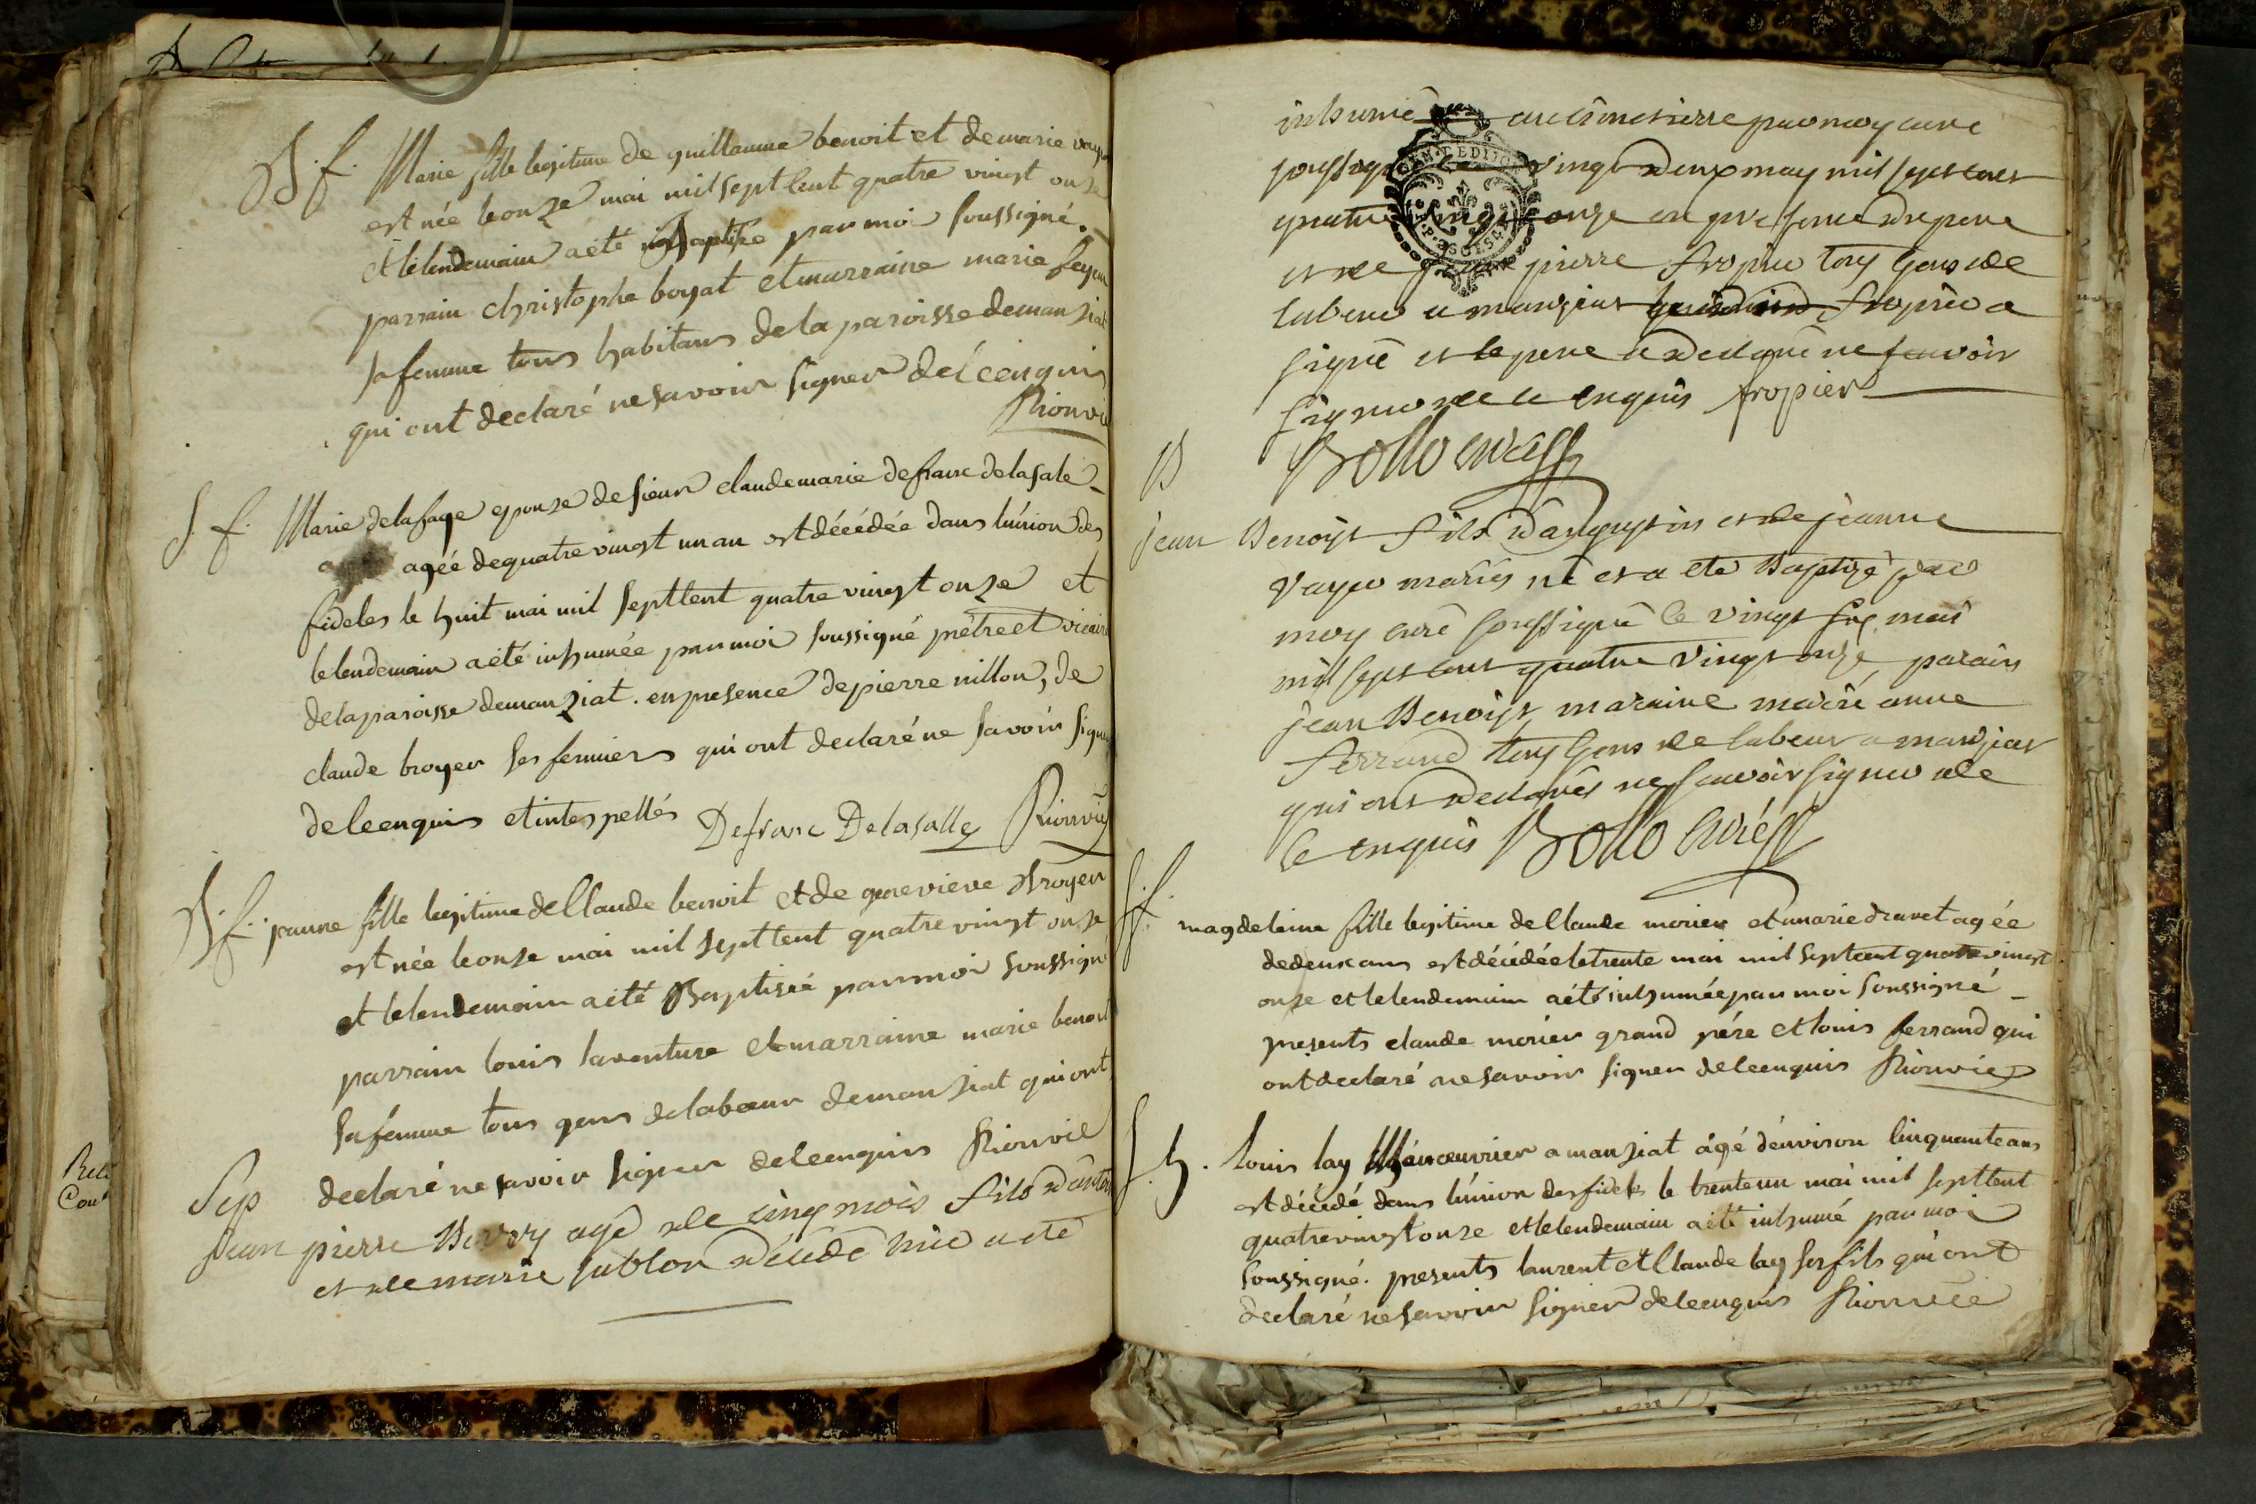 B. f. Marie fille legitime de guillaume benoit et de marie vayer
est née le onze mai mil sept cent quatre vingt onze
et le lendemain a été Baptisé par moi soussigné.
parrain christophe boyat et marraine marie feyeu
sa femme tous habitans de la paroisse demanziat
qui ont declaré ne savoir signer de ce enquis
Rionvie
S. f. Marie delafage epouse de sieur claude marie defranc delasale
agée de quatre vingt un an est décédée dans l'union des
fideles le huit mai mil sept cent quatre vingt onze et
le lendemain a été inhumée par moi soussigné prêtre et vicaire
de la paroisse demanziat. en presence de pierre nillon, de
claude broyer ses fermiers qui ont declaré ne savoir signer
de ce enquis et interpellés Defranc Delasalle Rionvie
B. f. jeanne fille legitime de Claude benoit et de genevieve Broyer
est née le onze mai mil sept cent quatre vingt onze
et le lendemain a été Baptisée par moi soussigné
parrain louis laventure et marraine marie benoit
sa femme tous gens de labeur demanziat qui ont
declaré ne savoir signer de ce enquis Rionvie
Sep
Jean pierre agé de cinq mois fils
et de marie sublon décédé hier a eté
inhumé au cimetierre par moy curé
soussigné vingt deux may mil sept cent
quatre vingt onze en presence du pere
et de pierre fropier tous gens de
labeur a manziat fropier a
signé et le pere a declaré ne scavoir
signer de ce enquis fropier
Bollo curé
B
jean Benoist fils d'augustin et de jeanne
vayer mariés né et a eté Baptizé par
moy curé soussigné le vingt six mai
mil sept cent quatre vingt onze parain
jean Benoist maraine marie anne
ferrand tous gens de labeur a manziat
qui ont declarés ne scavoir signer de
ce enquis Bollo curé
S. f.
magdeleine fille legitime de Claude morier et marie dravet agée
de deux ans est décédée le trente mai mil sept cent quatre vingt
onze et le lendemain a été inhumée par moi soussigné
presents claude morier grand pére et louis ferrand qui
ont declaré ne savoir signer de ce enquis Rionvie
S. h. Louis lay Manoeuvrier a manziat agé d'environ cinquante ans
est décédé dans l'union des fideles le trente un mai mil sept cent
quatre vingt onze et le lendemain a été inhumé par moi
soussigné. presents laurent et Claude lay ses fils qui ont
declaré ne savoir signer de ce enquis Rionvie